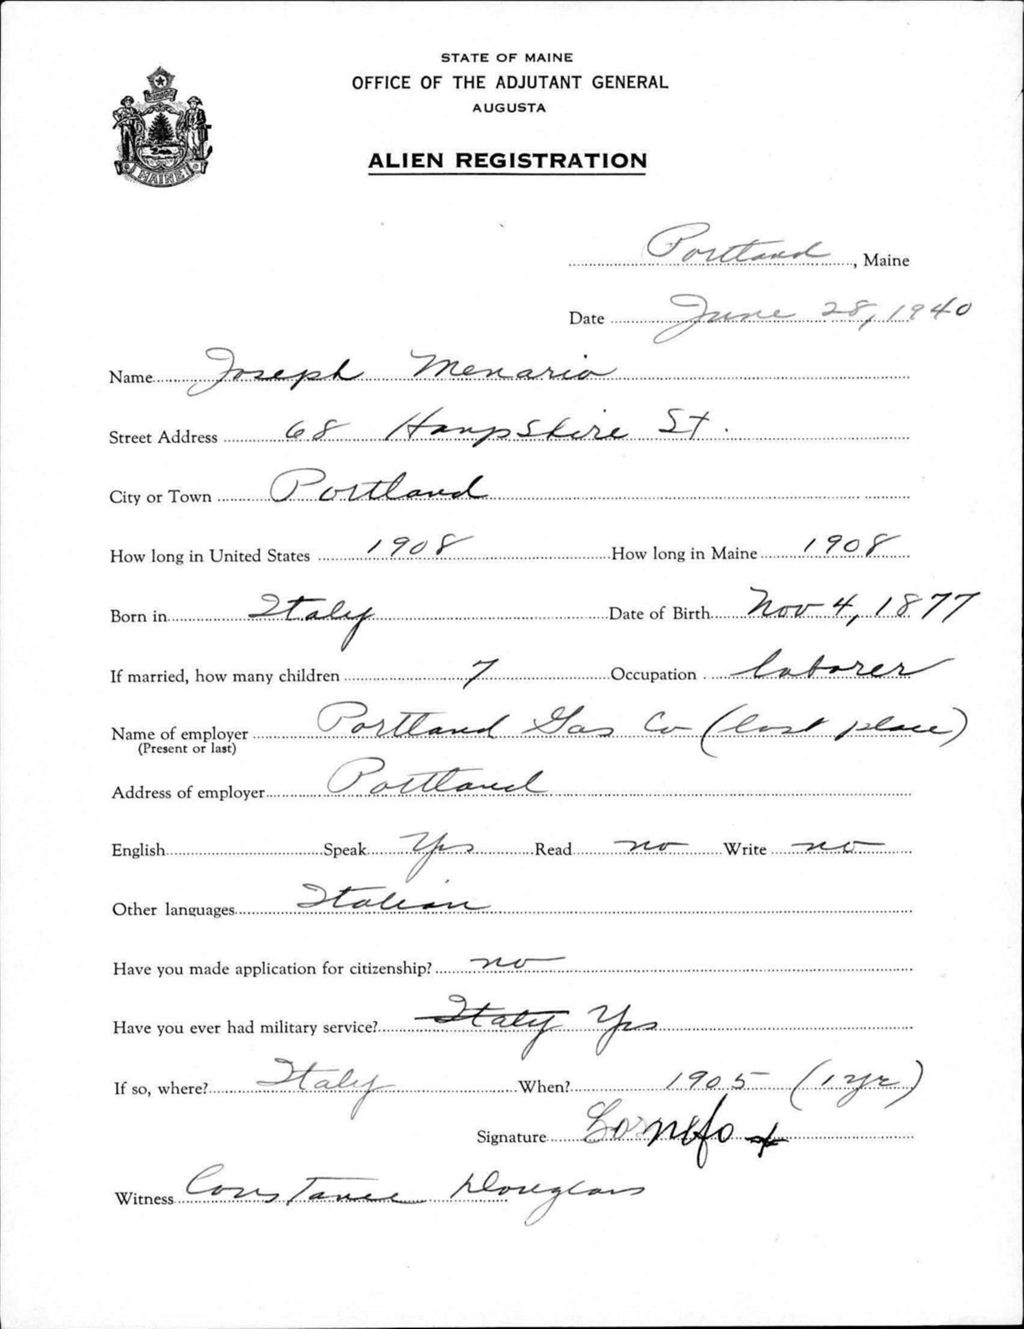 STATE OF MAINE
OFFICE OF THE ADJUTANT GENERAL
AUGUSTA
ALIEN REGISTRATION
MAINE
Portland, Maine
Date June 28, 1940
Name Joseph Menario
Street Address 68 Hampshire St.
City or Town Portland
How long in United States 1908 How long in Maine 1908
Born in Italy Date of Birth Nov 4, 1877
If married, how many children 7 Occupation laborer
Name of employer Portland Gas Co (last place)
(Present or last)
Address of employer Portland
English Speak Yes Read no Write no
Other languages Italian
Have you made application for citizenship? no
Have you ever had military service? Italy Yes
If so, where? Italy When? 1905 (1 yr)
Signature
Witness Constance Douglass